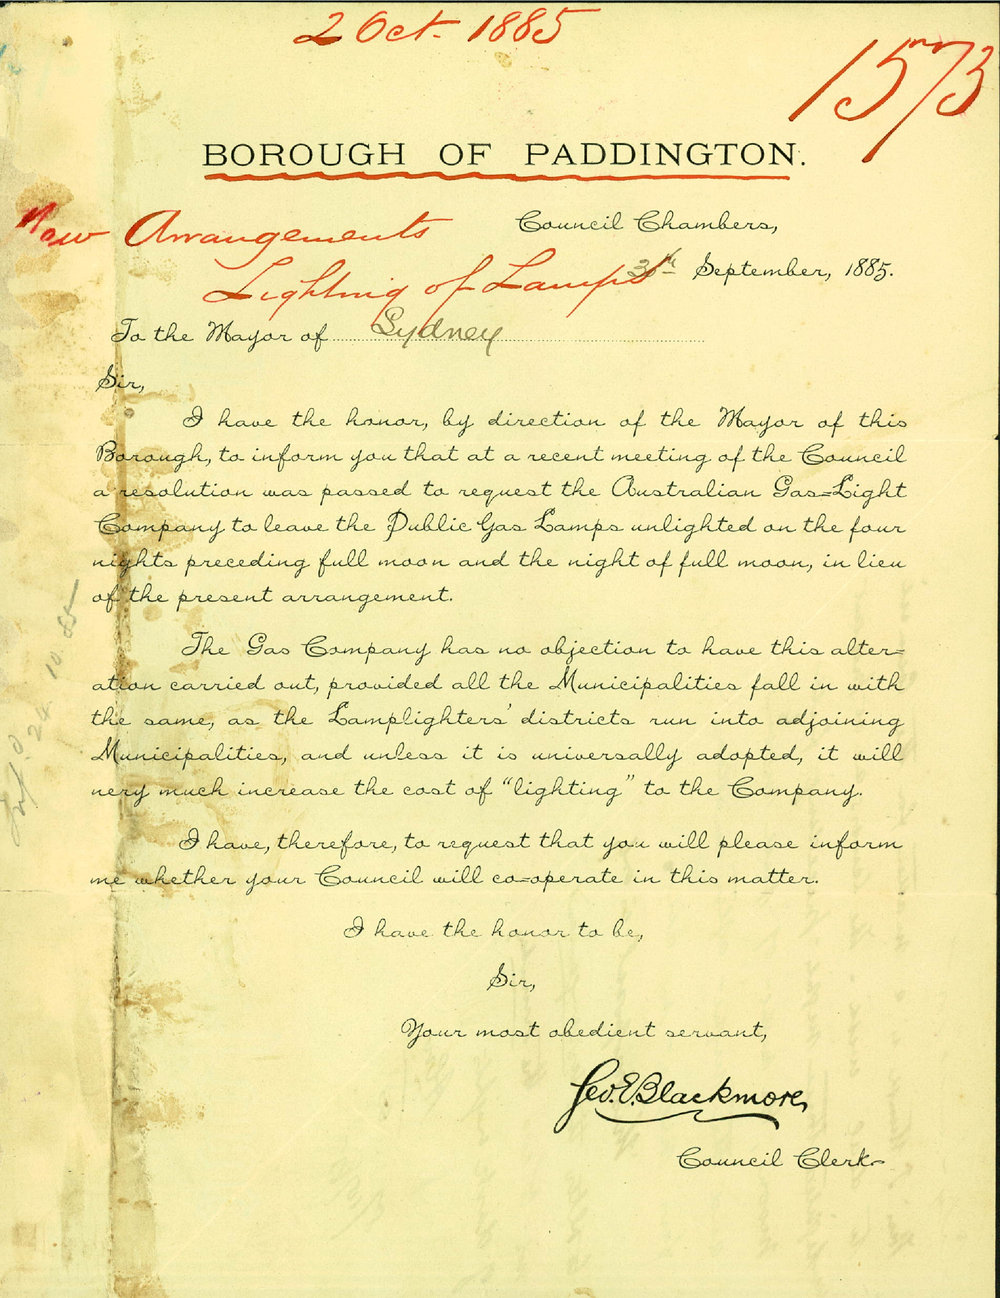 2 Oct. 1885
1573
BOROUGH OF PADDINGTON.
New Arrangements
Lighting of Lamps
Council Chambers,
September, 1885.
To the Mayor of Sydney
Sir,
I have the honor, by direction of the Mayor of this
Borough, to inform you that at a recent meeting of the Council
a resolution was passed to request the Australian Gas=Light
Company to leave the Public Gas Lamps unlighted on the four
nights preceding full moon and the night of full moon, in lieu
of the present arrangement.
The Gas Company has no objection to have this alter=
ation carried out, provided all the Municipalities fall in with
the same, as the Lamplighters' districts run into adjoining
Municipalities, and unless it is universally adopted, it will
very much increase the cost of "lighting" to the Company.
I have, therefore, to request that you will please inform
me whether your Council will co=operate in this matter.
I have the honor to be,
Sir,
Your most obedient servant,
Geo. E. Blackmore,
Council Clerk
24.10.85